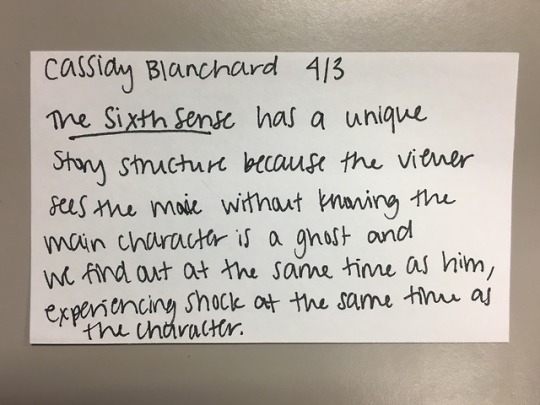 Cassidy Blanchard 4/3
The Sixth Sense has a unique
story structure because the viewer
sees the movie without knowing the
main character is a ghost and
we find out at the same time as him,
experiencing shock at the same time as
the character.